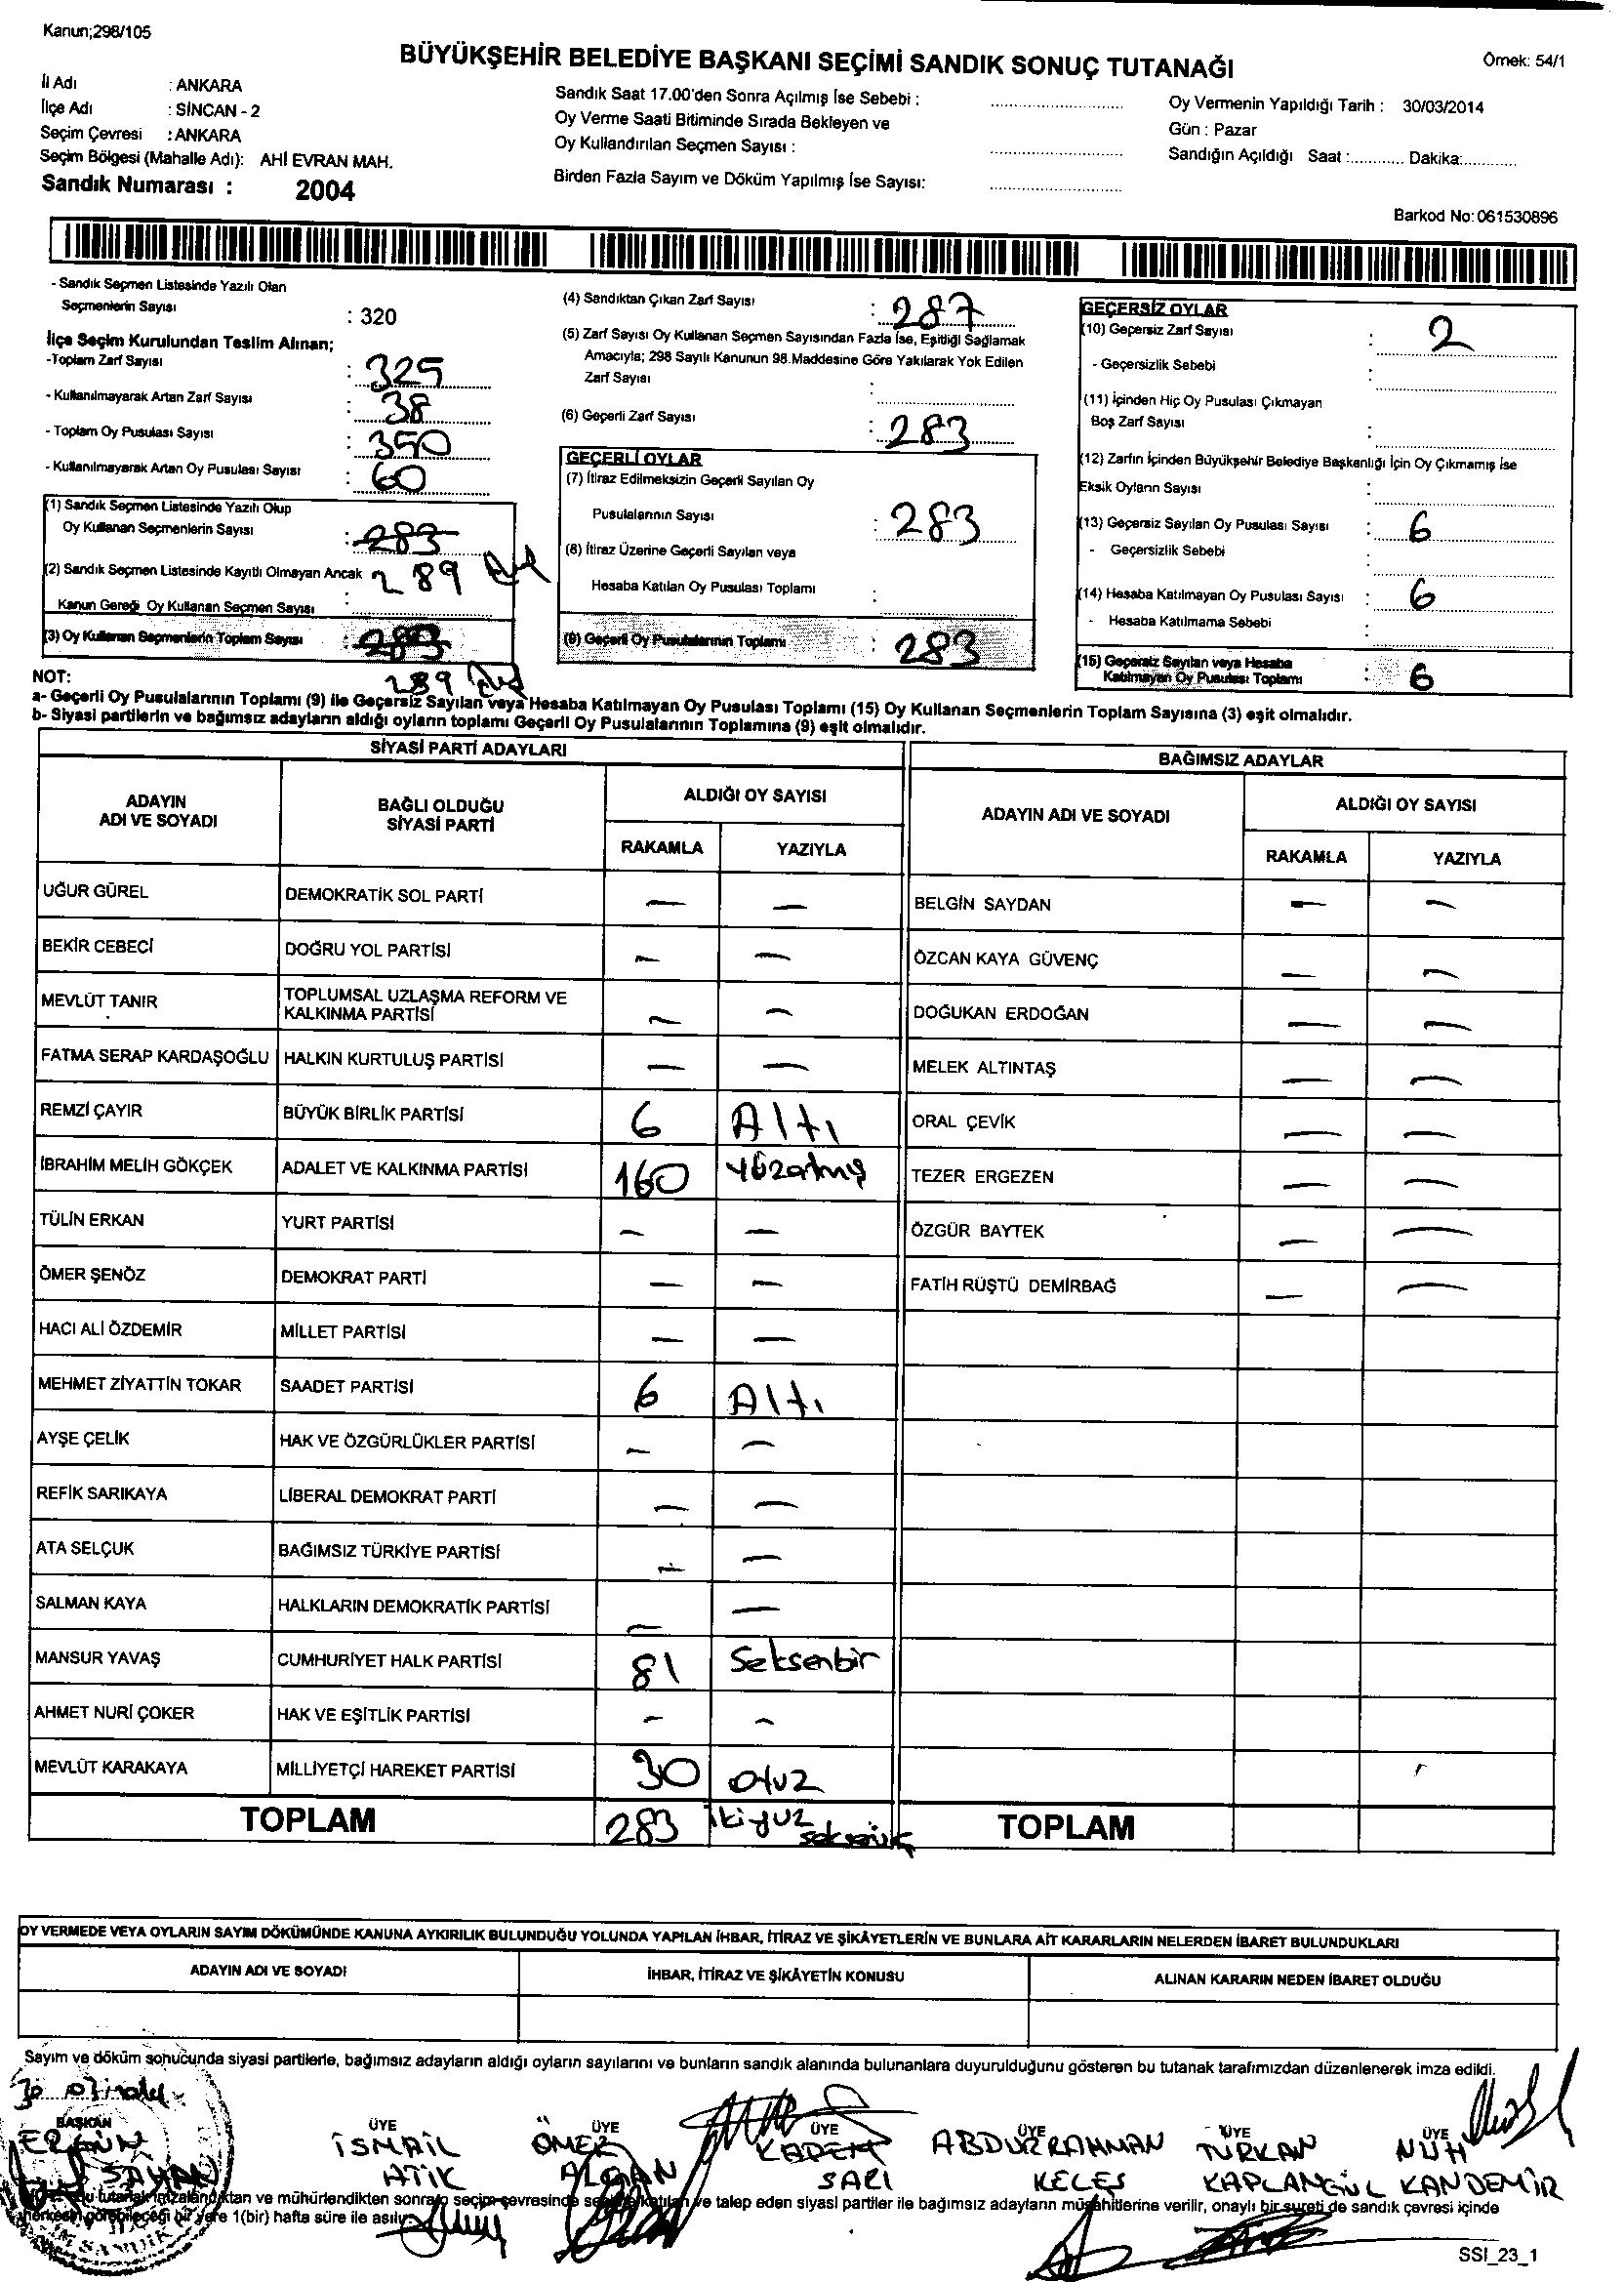 Kanun;298/105
BÜYÜKŞEHİR BELEDİYE BAŞKANI SEÇİMİ SANDIK SONUÇ TUTANAĞI
Örnek: 54/1
İl Adı : ANKARA
İlçe Adı : SİNCAN - 2
Seçim Çevresi : ANKARA
Seçim Bölgesi (Mahalle Adı): AHİ EVRAN MAH.
Sandık Numarası : 2004
Sandık Saat 17.00'den Sonra Açılmış İse Sebebi :
Oy Verme Saati Bitiminde Sırada Bekleyen ve
Oy Kullandırılan Seçmen Sayısı :
Birden Fazla Sayım ve Döküm Yapılmış İse Sayısı:
Oy Vermenin Yapıldığı Tarih : 30/03/2014
Gün : Pazar
Sandığın Açıldığı Saat :............ Dakika:............
Barkod No: 061530896
- Sandık Seçmen Listesinde Yazılı Olan
Seçmenlerin Sayısı : 320
İlçe Seçim Kurulundan Teslim Alınan;
-Toplam Zarf Sayısı : 325
- Kullanılmayarak Artan Zarf Sayısı : 38
- Toplam Oy Pusulası Sayısı : 350
- Kullanılmayarak Artan Oy Pusulası Sayısı : 60
(1) Sandık Seçmen Listesinde Yazılı Olup
Oy Kullanan Seçmenlerin Sayısı : 283
(2) Sandık Seçmen Listesinde Kayıtlı Olmayan Ancak 289
Kanun Gereği Oy Kullanan Seçmen Sayısı :
(3) Oy Kullanan Seçmenlerin Toplam Sayısı : 283
289
(4) Sandıktan Çıkan Zarf Sayısı : 287
(5) Zarf Sayısı Oy Kullanan Seçmen Sayısından Fazla İse, Eşitliği Sağlamak
Amacıyla; 298 Sayılı Kanunun 98.Maddesine Göre Yakılarak Yok Edilen
Zarf Sayısı :
(6) Geçerli Zarf Sayısı : 283
GEÇERLİ OYLAR
(7) İtiraz Edilmeksizin Geçerli Sayılan Oy
Pusulalarının Sayısı : 283
(8) İtiraz Üzerine Geçerli Sayılan veya
Hesaba Katılan Oy Pusulası Toplamı :
(9) Geçerli Oy Pusulalarının Toplamı : 283
GEÇERSİZ OYLAR
(10) Geçersiz Zarf Sayısı : 2
- Geçersizlik Sebebi :
(11) İçinden Hiç Oy Pusulası Çıkmayan
Boş Zarf Sayısı :
(12) Zarfın İçinden Büyükşehir Belediye Başkanlığı İçin Oy Çıkmamış İse
Eksik Oyların Sayısı :
(13) Geçersiz Sayılan Oy Pusulası Sayısı : 6
- Geçersizlik Sebebi :
(14) Hesaba Katılmayan Oy Pusulası Sayısı : 6
- Hesaba Katılmama Sebebi :
(15) Geçersiz Sayılan veya Hesaba
Katılmayan Oy Pusulası Toplamı : 6
NOT:
a- Geçerli Oy Pusulalarının Toplamı (9) ile Geçersiz Sayılan veya Hesaba Katılmayan Oy Pusulası Toplamı (15) Oy Kullanan Seçmenlerin Toplam Sayısına (3) eşit olmalıdır.
b- Siyasi partilerin ve bağımsız adayların aldığı oyların toplamı Geçerli Oy Pusulalarının Toplamına (9) eşit olmalıdır.
SİYASİ PARTİ ADAYLARI
ADAYIN ADI VE SOYADI
BAĞLI OLDUĞU SİYASİ PARTİ
ALDIĞI OY SAYISI
RAKAMLA YAZIYLA
UĞUR GÜREL DEMOKRATİK SOL PARTİ — —
BEKİR CEBECİ DOĞRU YOL PARTİSİ — —
MEVLÜT TANIR TOPLUMSAL UZLAŞMA REFORM VE KALKINMA PARTİSİ — —
FATMA SERAP KARDAŞOĞLU HALKIN KURTULUŞ PARTİSİ — —
REMZİ ÇAYIR BÜYÜK BİRLİK PARTİSİ 6 Altı
İBRAHİM MELİH GÖKÇEK ADALET VE KALKINMA PARTİSİ 160 yüzatmış
TÜLİN ERKAN YURT PARTİSİ — —
ÖMER ŞENÖZ DEMOKRAT PARTİ — —
HACI ALİ ÖZDEMİR MİLLET PARTİSİ — —
MEHMET ZİYATTİN TOKAR SAADET PARTİSİ 6 Altı
AYŞE ÇELİK HAK VE ÖZGÜRLÜKLER PARTİSİ — —
REFİK SARIKAYA LİBERAL DEMOKRAT PARTİ — —
ATA SELÇUK BAĞIMSIZ TÜRKİYE PARTİSİ — —
SALMAN KAYA HALKLARIN DEMOKRATİK PARTİSİ — —
MANSUR YAVAŞ CUMHURİYET HALK PARTİSİ 81 Seksenbir
AHMET NURİ ÇOKER HAK VE EŞİTLİK PARTİSİ — —
MEVLÜT KARAKAYA MİLLİYETÇİ HAREKET PARTİSİ 30 Otuz
TOPLAM 283 ikiyuz seksenüç
BAĞIMSIZ ADAYLAR
ADAYIN ADI VE SOYADI
ALDIĞI OY SAYISI
RAKAMLA YAZIYLA
BELGİN SAYDAN — —
ÖZCAN KAYA GÜVENÇ — —
DOĞUKAN ERDOĞAN — —
MELEK ALTINTAŞ — —
ORAL ÇEVİK — —
TEZER ERGEZEN — —
ÖZGÜR BAYTEK — —
FATİH RÜŞTÜ DEMİRBAĞ — —
TOPLAM
OY VERMEDE VEYA OYLARIN SAYIM DÖKÜMÜNDE KANUNA AYKIRILIK BULUNDUĞU YOLUNDA YAPILAN İHBAR, İTİRAZ VE ŞİKÂYETLERİN VE BUNLARA AİT KARARLARIN NELERDEN İBARET BULUNDUKLARI
ADAYIN ADI VE SOYADI
İHBAR, İTİRAZ VE ŞİKÂYETİN KONUSU
ALINAN KARARIN NEDEN İBARET OLDUĞU
Sayım ve döküm sonucunda siyasi partilerle, bağımsız adayların aldığı oyların sayılarını ve bunların sandık alanında bulunanlara duyurulduğunu gösteren bu tutanak tarafımızdan düzenlenerek imza edildi.
BAŞKAN ÜYE ÜYE ÜYE ÜYE ÜYE ÜYE
ERGÜN İSMAİL ÖMER KADEM ABDURRAHMAN TÜRKAN NUH
ŞAHAN ATİK ALCAN SARI KELEŞ KAPLANGÜL KANDEMİR
Bu tutanak imzalandıktan ve mühürlendikten sonra o seçim çevresinde seçime katılan ve talep eden siyasi partiler ile bağımsız adayların müşahitlerine verilir, onaylı bir sureti de sandık çevresi içinde
herkesin görebileceği bir yere 1(bir) hafta süre ile asılır.
SSI_23_1